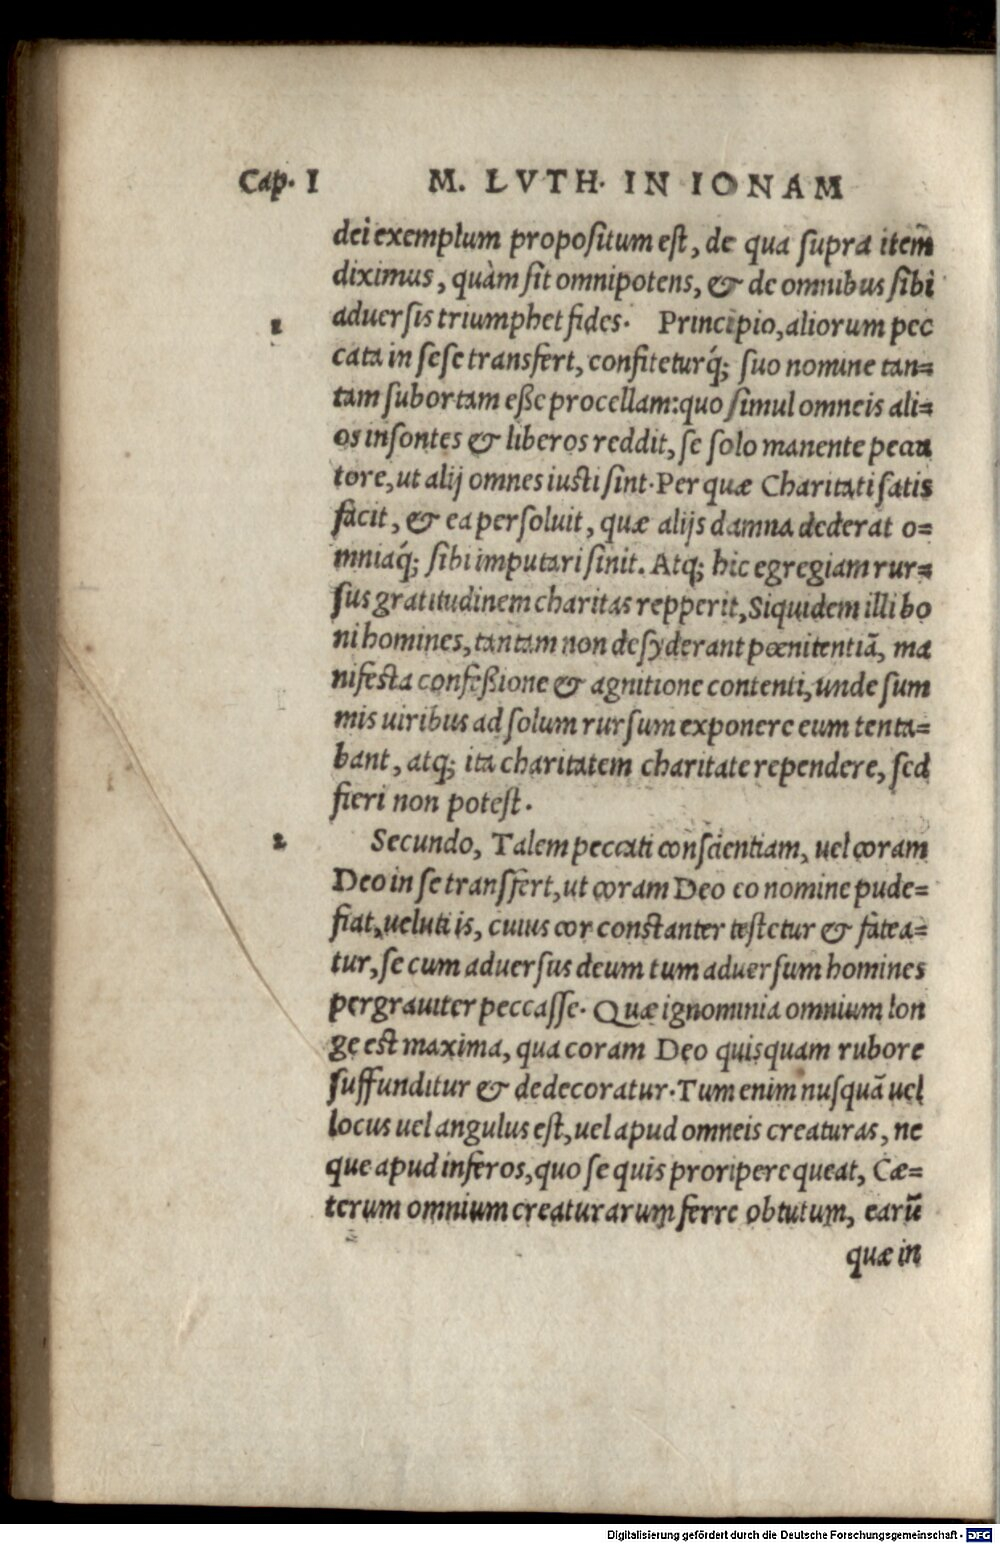 Cap. I M. LVTH. IN IONAM
dei exemplum propositum est, de qua supra item̃
diximus, quàm sit omnipotens, & de omnibus sibi
1 aduersis triumphet fides. Principio, aliorum pec
cata in sese transfert, confiteturq́; suo nomine tan=
tam subortam eße procellam: quo simul omneis ali=
os insontes & liberos reddit, se solo manente pecca
tore, ut alij omnes iusti sint. Per quæ Charitati satis
facit, & ea persoluit, quæ alijs damna dederat o=
mniaq́; sibi imputari sinit. Atq; hic egregiam rur=
sus gratitudinem charitas repperit, Siquidem illi bo
ni homines, tantam non desyderant pœnitentiã, ma
nifesta confeßione & agnitione contenti, unde sum
mis uiribus ad solum rursum exponere eum tenta=
bant, atq; ita charitatem charitate rependere, sed
fieri non potest.
2. Secundo, Talem peccati conscientiam, uel coram
Deo in se transfert, ut coram Deo eo nomine pude=
fiat, ueluti is, cuius cor constanter testetur & fatea=
tur, se cum aduersus deum tum aduersum homines
pergrauiter peccasse. Quæ ignominia omnium lon
ge est maxima, qua coram Deo quisquam rubore
suffunditur & dedecoratur. Tum enim nusquã uel
locus uel angulus est, uel apud omneis creaturas, ne
que apud inferos, quo se quis proripere queat, Cæ=
terum omnium creaturarum ferre obtutum, earũ
quæ in
Digitalisierung gefördert durch die Deutsche Forschungsgemeinschaft - DFG